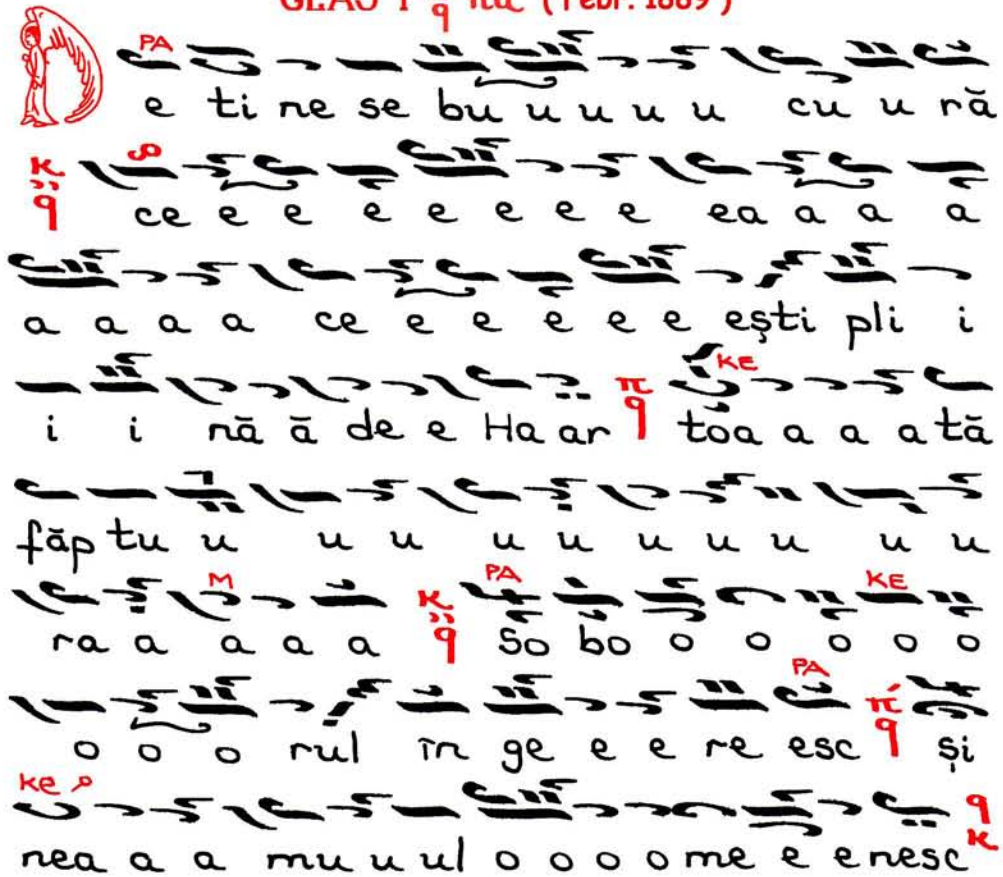 GLAS I Pa (Febr. 1889)
PA
De ti ne se bu u u u u cu u ră
ce e e e e e e e ea a a a
a a a a ce e e e e e e ești pli i
KE
i i nă ă de e Ha ar toa a a a tă
făp tu u u u u u u u u u u
M PA KE
ra a a a a so bo o o o o o
PA
o o o rul în ge e e re esc și
Ke
nea a a mu u ul o o o o me e e nesc